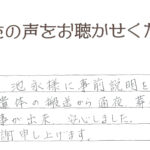 の声をお聴かせくだ
池永様に事前説明を
遺体の搬送から通夜、葬
事が出来、安心しました。
謝申し上げます。